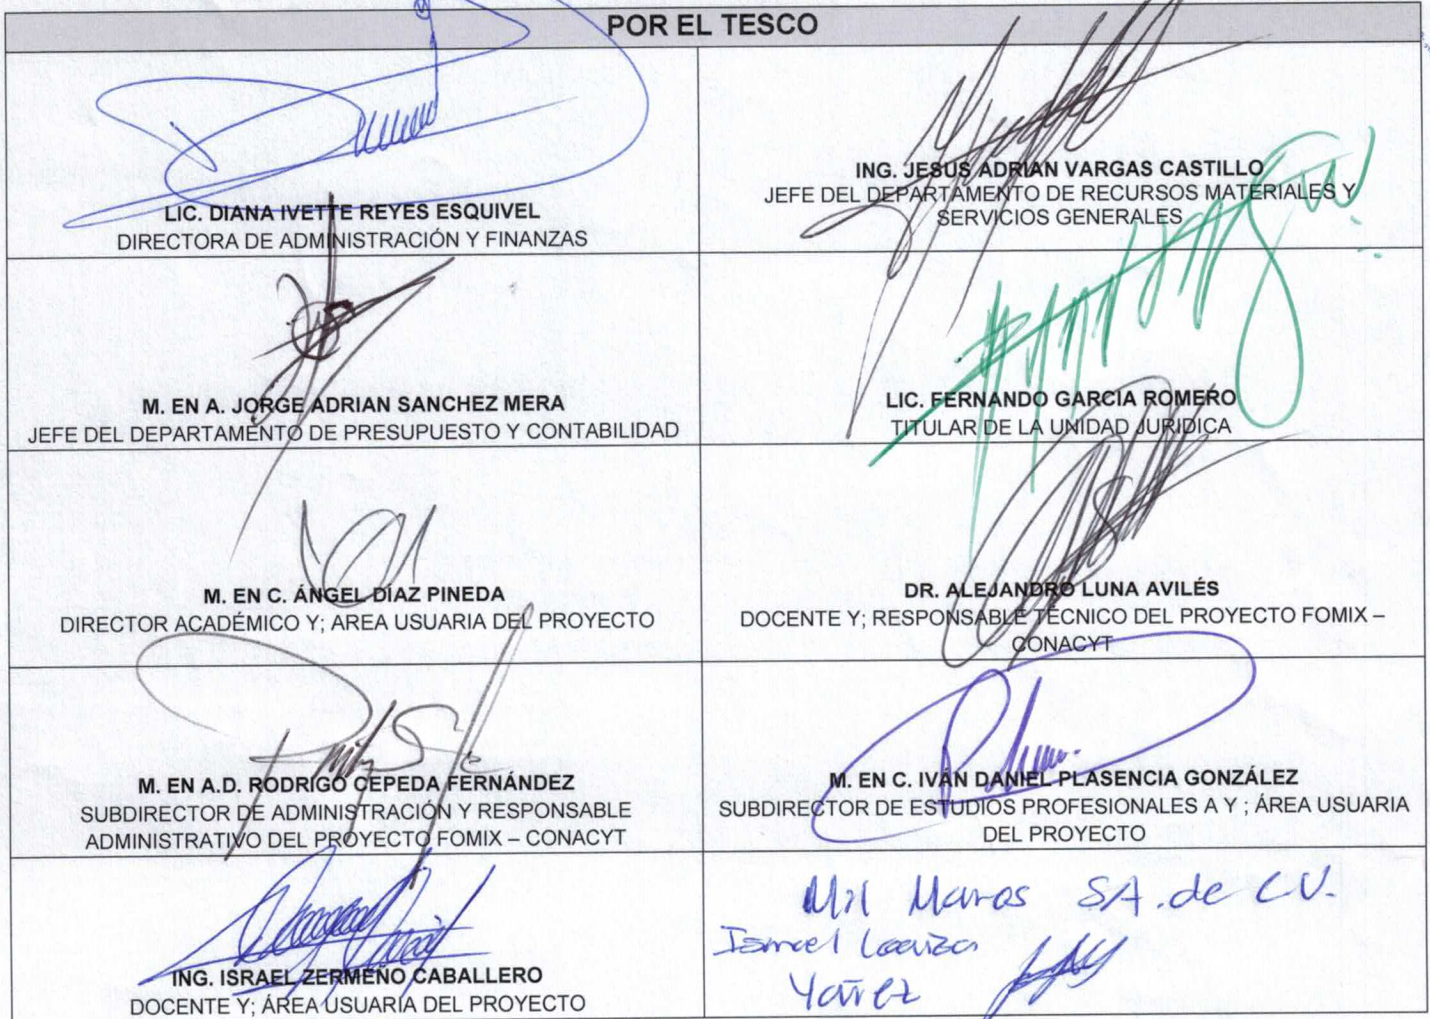 POR EL TESCO
LIC. DIANA IVETTE REYES ESQUIVEL
DIRECTORA DE ADMINISTRACIÓN Y FINANZAS
ING. JESUS ADRIAN VARGAS CASTILLO
JEFE DEL DEPARTAMENTO DE RECURSOS MATERIALES Y
SERVICIOS GENERALES
M. EN A. JORGE ADRIAN SANCHEZ MERA
JEFE DEL DEPARTAMENTO DE PRESUPUESTO Y CONTABILIDAD
LIC. FERNANDO GARCIA ROMERO
TITULAR DE LA UNIDAD JURIDICA
M. EN C. ÁNGEL DIAZ PINEDA
DIRECTOR ACADÉMICO Y; AREA USUARIA DEL PROYECTO
DR. ALEJANDRO LUNA AVILÉS
DOCENTE Y; RESPONSABLE TÉCNICO DEL PROYECTO FOMIX –
CONACYT
M. EN A.D. RODRIGO CEPEDA FERNÁNDEZ
SUBDIRECTOR DE ADMINISTRACIÓN Y RESPONSABLE
ADMINISTRATIVO DEL PROYECTO FOMIX – CONACYT
M. EN C. IVAN DANIEL PLASENCIA GONZÁLEZ
SUBDIRECTOR DE ESTUDIOS PROFESIONALES A Y ; ÁREA USUARIA
DEL PROYECTO
ING. ISRAEL ZERMEÑO CABALLERO
DOCENTE Y; ÁREA USUARIA DEL PROYECTO
Mil SA. de C.V.
Yañez